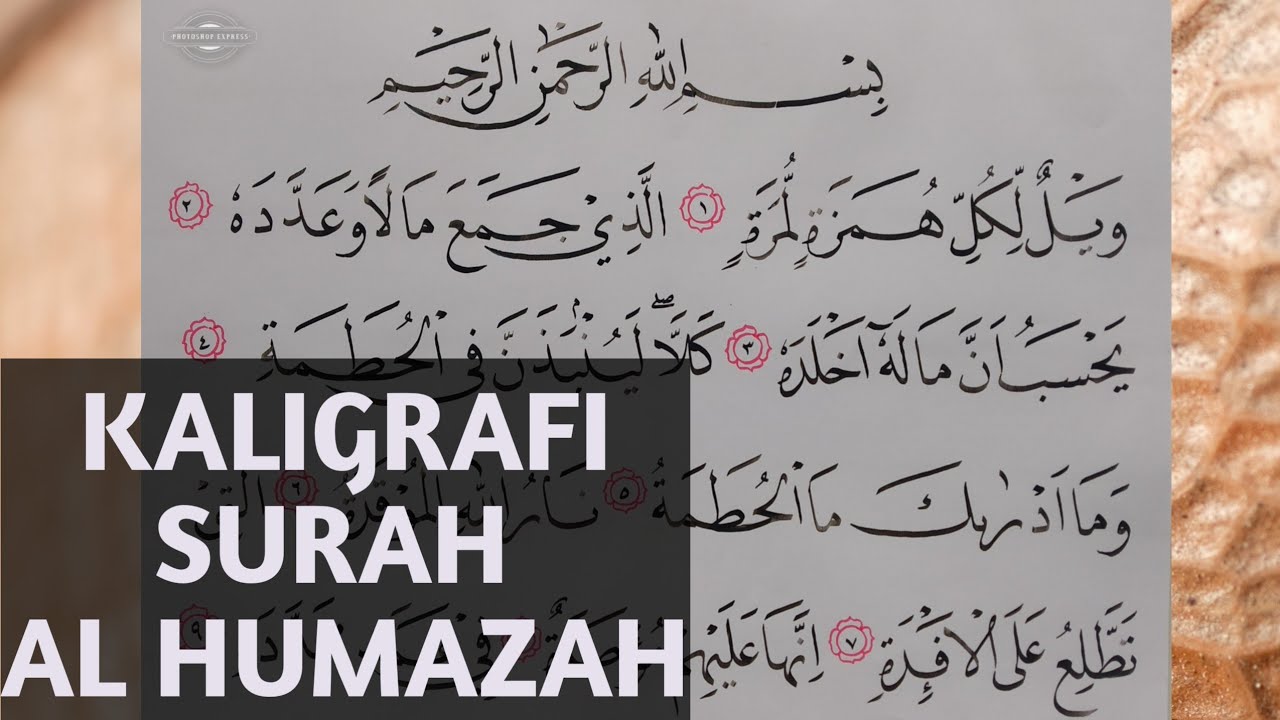 PHOTOSHOP EXPRESS
بِسْمِ اللهِ الرَّحْمٰنِ الرَّحِيْمِ
وَيْلٌ لِّكُلِّ هُمَزَةٍ لُّمَزَةٍ ١ الَّذِيْ جَمَعَ مَالًا وَعَدَّدَهٗ ٢
يَحْسَبُ اَنَّ مَالَهٗٓ اَخْلَدَهٗ ٣ كَلَّاۖ لَيُنْۢبَذَنَّ فِى الْحُطَمَةِ ٤
وَمَا اَدْرٰىكَ مَا الْحُطَمَةُ ٥ نَارُ اللهِ الْمُوْقَدَةُ ٦ الَّتِيْ
تَطَّلِعُ عَلَى الْاَفْـِٕدَةِ ٧ اِنَّهَا عَلَيْهِمْ فِيْ ٩
KALIGRAFI
SURAH
AL HUMAZAH